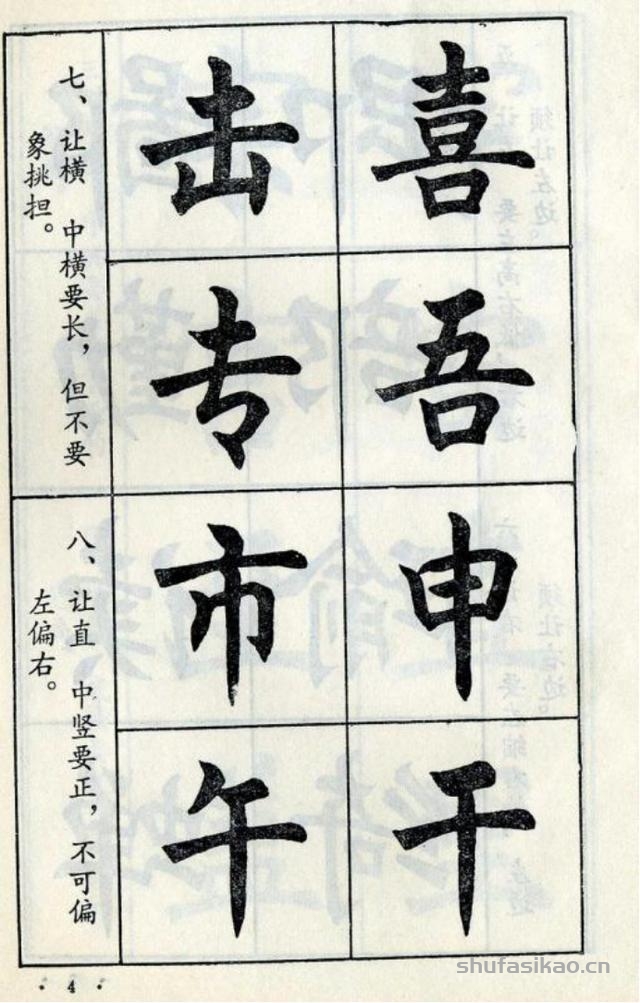 七、让横 中横要长，但不要
象挑担。
击 喜
专 吾
八、让直 中竖要正，不可偏
左偏右。
市 申
午 干
· 4 ·
shufasikao.cn